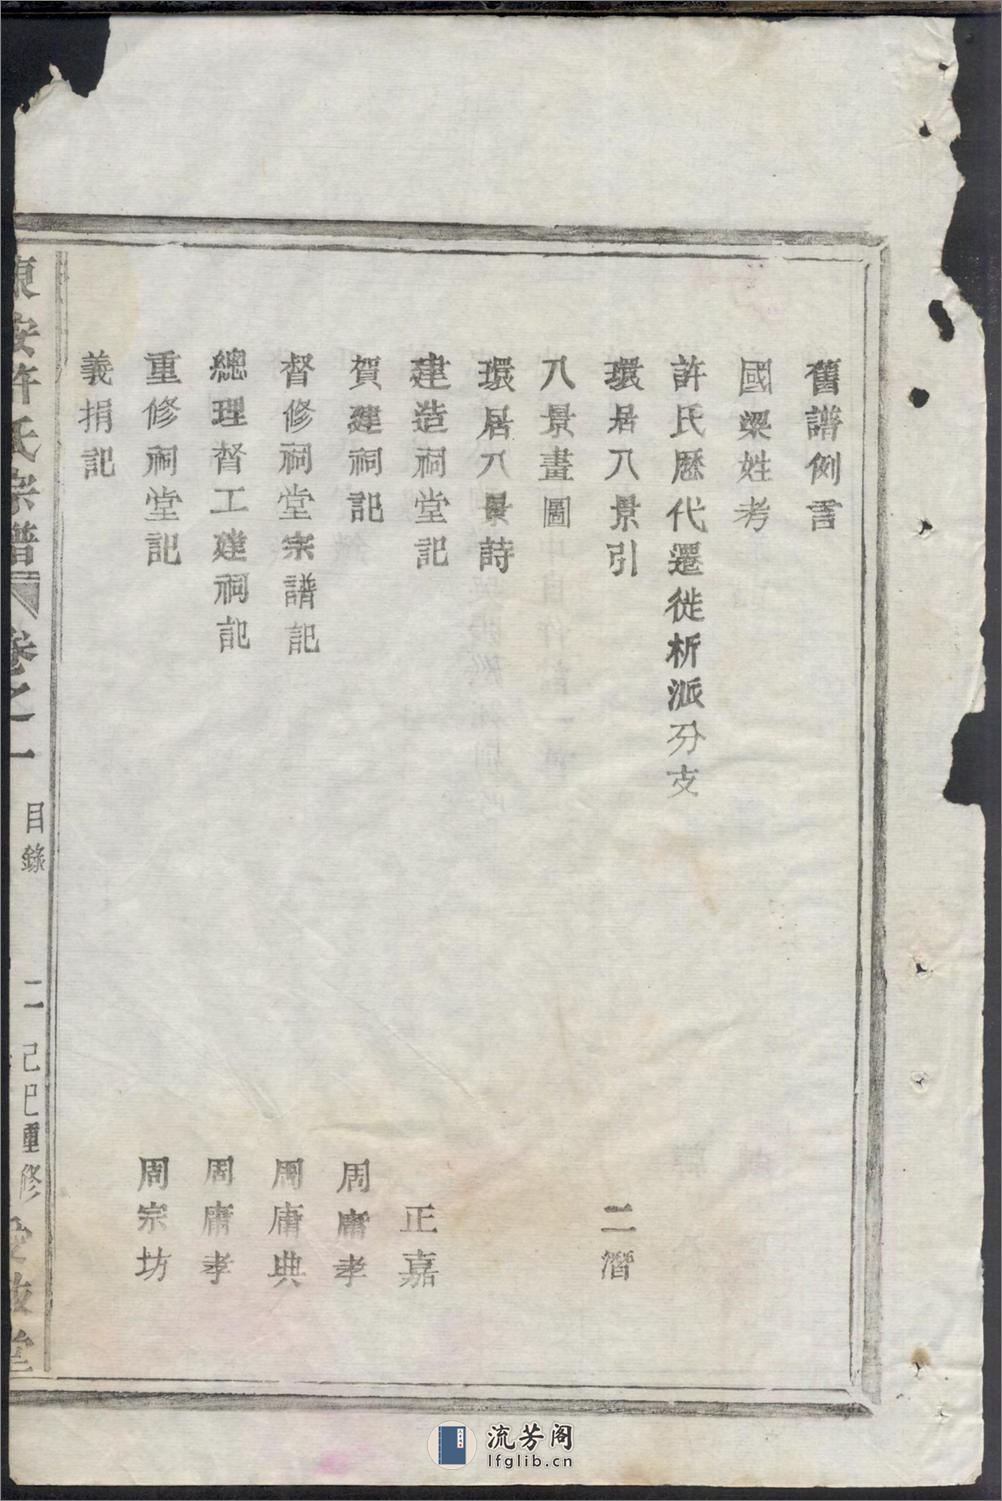 舊譜例言
國梁姓考
許氏歷代遷徙析派分支
環居八景引 二潛
八景畫圖
環居八景詩
建造祠堂記 正嘉
賀建祠記 周庸孝
督修祠堂宗譜記 周庸典
總理督工建祠記 周庸孝
重修祠堂記 周宗坊
義捐記
東安許氏宗譜 卷之一 目錄 二 己巳重修
流芳阁
lfglib.cn